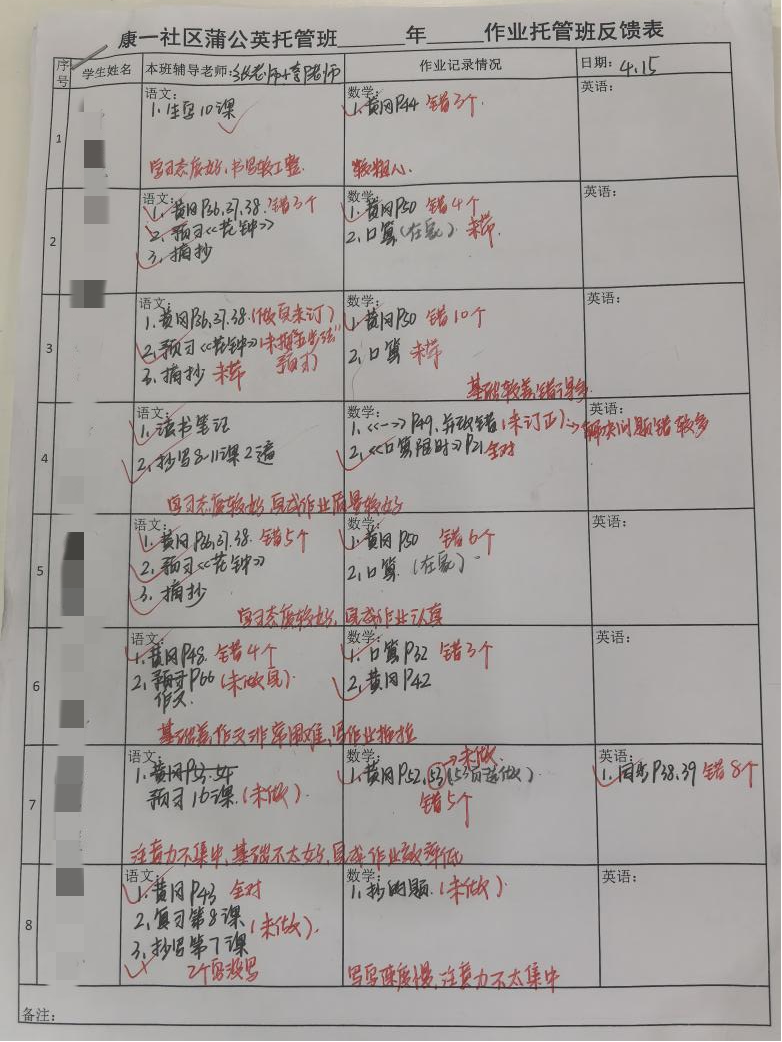 康一社区蒲公英托管班______年_____作业托管班反馈表
序号 学生姓名 本班辅导老师:张老师 李老师 作业记录情况 日期: 4.15
1
语文:
1. 生写10课
学习态度好,书写较工整.
数学:
1. 黄冈P44 错3个.
较粗心.
英语:
2
语文:
1. 黄冈P36.37.38. 错3个
2. 预习《花钟》
3. 摘抄
数学:
1. 黄冈P50 错4个
2. 口算(在家). 未带.
英语:
3
语文:
1. 黄冈P36.37.38.(做完未订)
2. 预习《花钟》(未按"五步法"
预习)
3. 摘抄 未带
数学:
1. 黄冈P50 错10个
2. 口算 未带
基础较差,错得多.
英语:
4
语文:
1. 读书笔记
2. 抄写8-11课2遍
学习态度较好,完成作业质量较好
数学:
1. 《一》P49, 并改错(未订正)→解决问题错较多
2. 《口算限时》P21 全对
英语:
5
语文:
1. 黄冈P36.37.38. 错5个
2. 预习《花钟》
3. 摘抄
学习态度较好, 完成作业认真
数学:
1. 黄冈P50 错6个
2. 口算.(在家).
英语:
6
语文:
1. 黄冈P48. 错4个
2. 预习P66 (未做完).
作文.
基础差,作文非常困难,写作业拖拉
数学:
1. 口算P32 错3个
2. 黄冈P42
英语:
7
语文:
1. 黄冈P53.54
预习16课.(未做).
注意力不集中,基础不太好,完成作业效率低
数学:
→未做.
1. 黄冈P52.53(53页选做).
错5个
英语:
1. 同步P38.39 错8个
8
语文:
1. 黄冈P43 全对
2. 复习第8课 (未做).
3. 抄写第7课
2个字没写
数学:
1. 抄的题.(未做).
书写速度慢,注意力不太集中
英语:
备注: